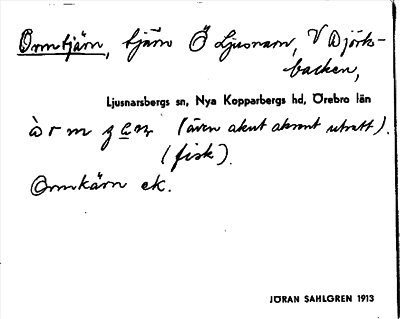 Ormtjärn, tjärn Ö Ljusnaren, V Björks-
backen,
Ljusnarsbergs sn, Nya Kopparbergs hd, Örebro län
(även akut aksent uttalt).
(fisk).
Ormkärn ek.
JÖRAN SAHLGREN 1913